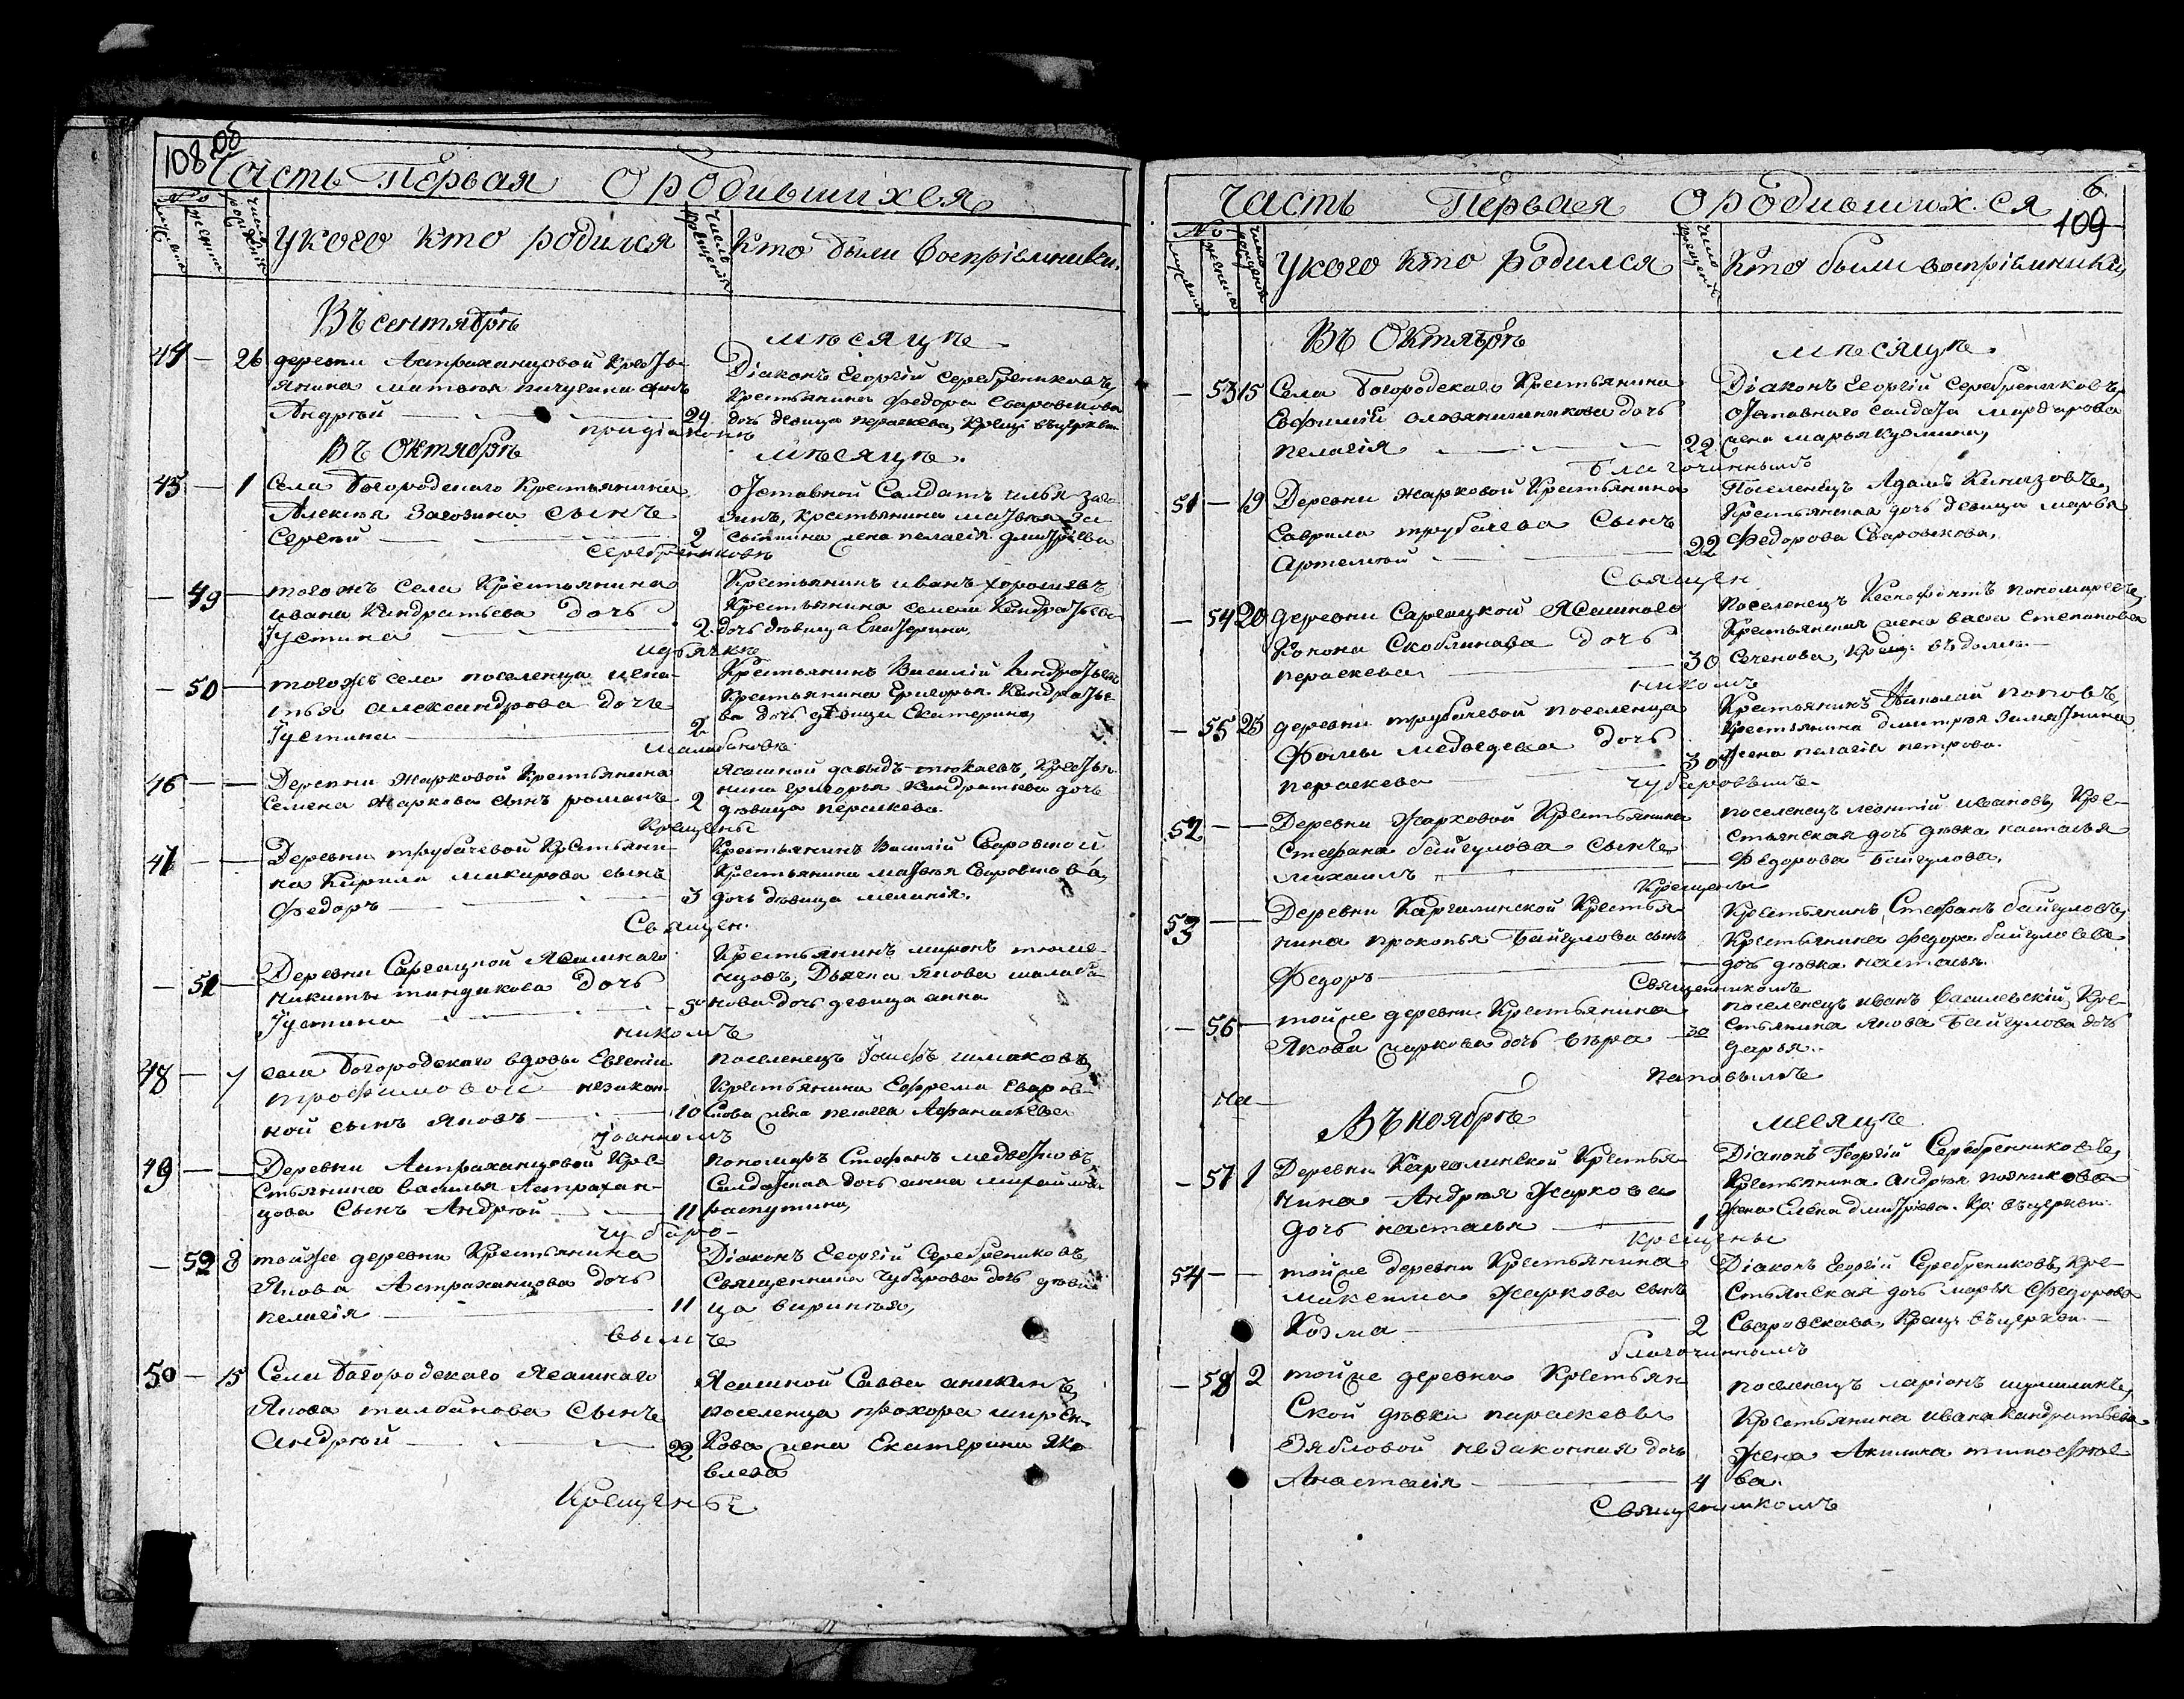 108 об
Часть Первая О родившихся
№
мужска
женска
число рожденія
У кого кто родился
число крещенія
Кто были восприемники
Въ сентябрѣ
мѣсяцѣ
44 — 26 деревни Астраханцовой Кресть
янина матвея пичугина сынъ
Андрей — 29
Діаконъ Георгій Серебрениковъ,
Крестьянина Федора Сваровскова
дочь девица пераскева, Крещ: въцеркви
при діаконѣ
Въ Октябрѣ
мѣсяцѣ.
45 — 1 Села Богородскаго Крестьянина
Алексея Заговина сынъ
Сергей — 2
отставной Салдатъ илья заго
винъ, крестьянина матвея За
сыпкина жена пелагія дмитріева
Серебрениковѣ
— 49 — тогожъ села Крестьянина
ивана Кандратьева дочь
Іустина — 2
Крестьянинъ иванъ хорошевъ,
Крестьянина семена Кандратьева
дочь дѣвица Екатерина,
и дьячкѣ
— 50 — тогожъ села поселенца игна-
тья александрова дочь
Іустина — 2
Крестьянинъ Василій Кандратьевъ
Крестьянина Григорья Кандратье
ва дочь дѣвица Екатерина,
Малабановѣ
46 — — Деревни Жарковой Крестьянина
Семена Жаркова сынъ романъ 2
Ясашной давыдъ тюкаевъ, Кресть
янина григорья Кандратьева дочь
дѣвица пераскева.
Крещены
47 — — Деревни трубачевой Крстьяни
на Кирила макарова сынъ
Федоръ — 3
Крестьянинъ Василій Сваровской
Крестьянина матвея Сваровскова,
дочь дѣвица меланія.
Священ.
— 51 — Деревни Саргацкой Ясашнаго
Никиты тиндикова дочь
Іустина — 5
Крестьянинъ миронъ тюме-
нцовъ, Дьячка якова малаба
нова дочь девица анна
никомъ
48 — 7 села Богородскаго вдовы Евгеніи
трофимовой незакон
ной сынъ яковъ — 10
поселенецъ Іосифъ шмаковъ,
Крестьянина Ефрема Сваров-
скова жена пелагея Афанасьева
Іоанномъ
49 — — Деревни Астраханцовой Кре-
стьянина василья Астрахан-
цова Сынъ Андрей — 11
пономарь Стефанъ медведковъ
Салдатская дочь анна михайлова
распутина,
чубаро-
— 52 8 тойже деревни Крестьянина
Якова Астраханцова дочь
пелагія — 11
Діаконъ Георгій Серебрениковъ,
Священника чубарова дочь дѣви
ца виринея,
вымъ
50 — 15 Села Богородскаго Ясашнаго
Якова талбакова Сынъ
Андрей — 22
Ясашной Савва аникинъ,
поселенца прохора ширен-
кова жена Екатерина яко
влева
Крещены

6
109
Часть Первая О родившихся
№
мужска
женска
число рожденія
У кого кто родился
число крещенія
Кто были воспріемники
Въ Октябрѣ
мѣсяцѣ.
— 53 15 Села Богородскаго Крестьянина
Евфимій оловянишникова дочь
пелагія — 22
Діаконъ Георгій Серебрениковъ,
отставнаго салдата
жена марья кузмина,
Благочиннымъ
51 — 19 Деревни жарковой Крестьянина
Гаврила трубачева Сынъ
Артемей — 22
Поселенецъ Адамъ Кинязовъ,
Крестьянина дочь девица марья
Федорова Сваровскова.
Священ
— 54 20 деревни Саргацкой Ясашнаго
Конона Скоблинова дочь
пераскева — 30
Поселенецъ Ксенофонтъ пономаревъ,
Крестьянская жена васса степанова
Сеченова, Крещ: въ доме.—
никомъ
— 55 25 деревни трубачевой поселенца
Фомы медведева дочь
пераскева — 30
Крестьянинъ Николай поповъ,
Крестьянина дмитрея Замятнина
жена пелагія петрова.
Чубаровымъ
52 — — Деревни Жарковой Крестьянина
Стефана байгулова сынъ
михаилъ —
поселенецъ леонтій ивановъ, Кре-
стьянская дочь дѣвка насталья
Федорова Байгулова.
Крещены
53 — — Деревни Каргалинской Крестья
нина прокопья Байгулова сынъ
Федоръ —
Крестьянинъ Стефанъ байгуловъ,
Крестьянина федора байгулова
дочь дѣвка насталья.
Священникомъ
— 56 — тойже деревни Крестьянина
Якова жаркова дочь вѣра — 30
поселенецъ иванъ Василевскій, Кре-
стьянина якова Байгулова дочь
дарья.
Паповымъ
на
Въ ноябрѣ
месяцѣ
— 57 1 Деревни Каргалинской Крестья
нина Андрея Жаркова
дочь насталья — 1
Діаконъ Георгій Серебренниковъ,
Крестьянина андрея пояикова
жена Елена дмитріева. Кр: въцеркви.
Крещены
54 — — тойже деревни Крестьянина
максима жаркова сынъ
Козма — 2
Діаконъ Георгій Серебрениковъ, Кре-
стьянская дочь марья Федорова
Сваровскова, Крещ: въцеркви —
благочиннымъ
— 58 2 тойже деревни Крестьян
Ской дѣвки параскевы
Зябловой незаконная дочь
Анастасія — 4
поселенецъ ларіонъ шумилинъ,
Крестьянина ивана кандратьева
жена Акилина тимофее
ва.
Священникомъ